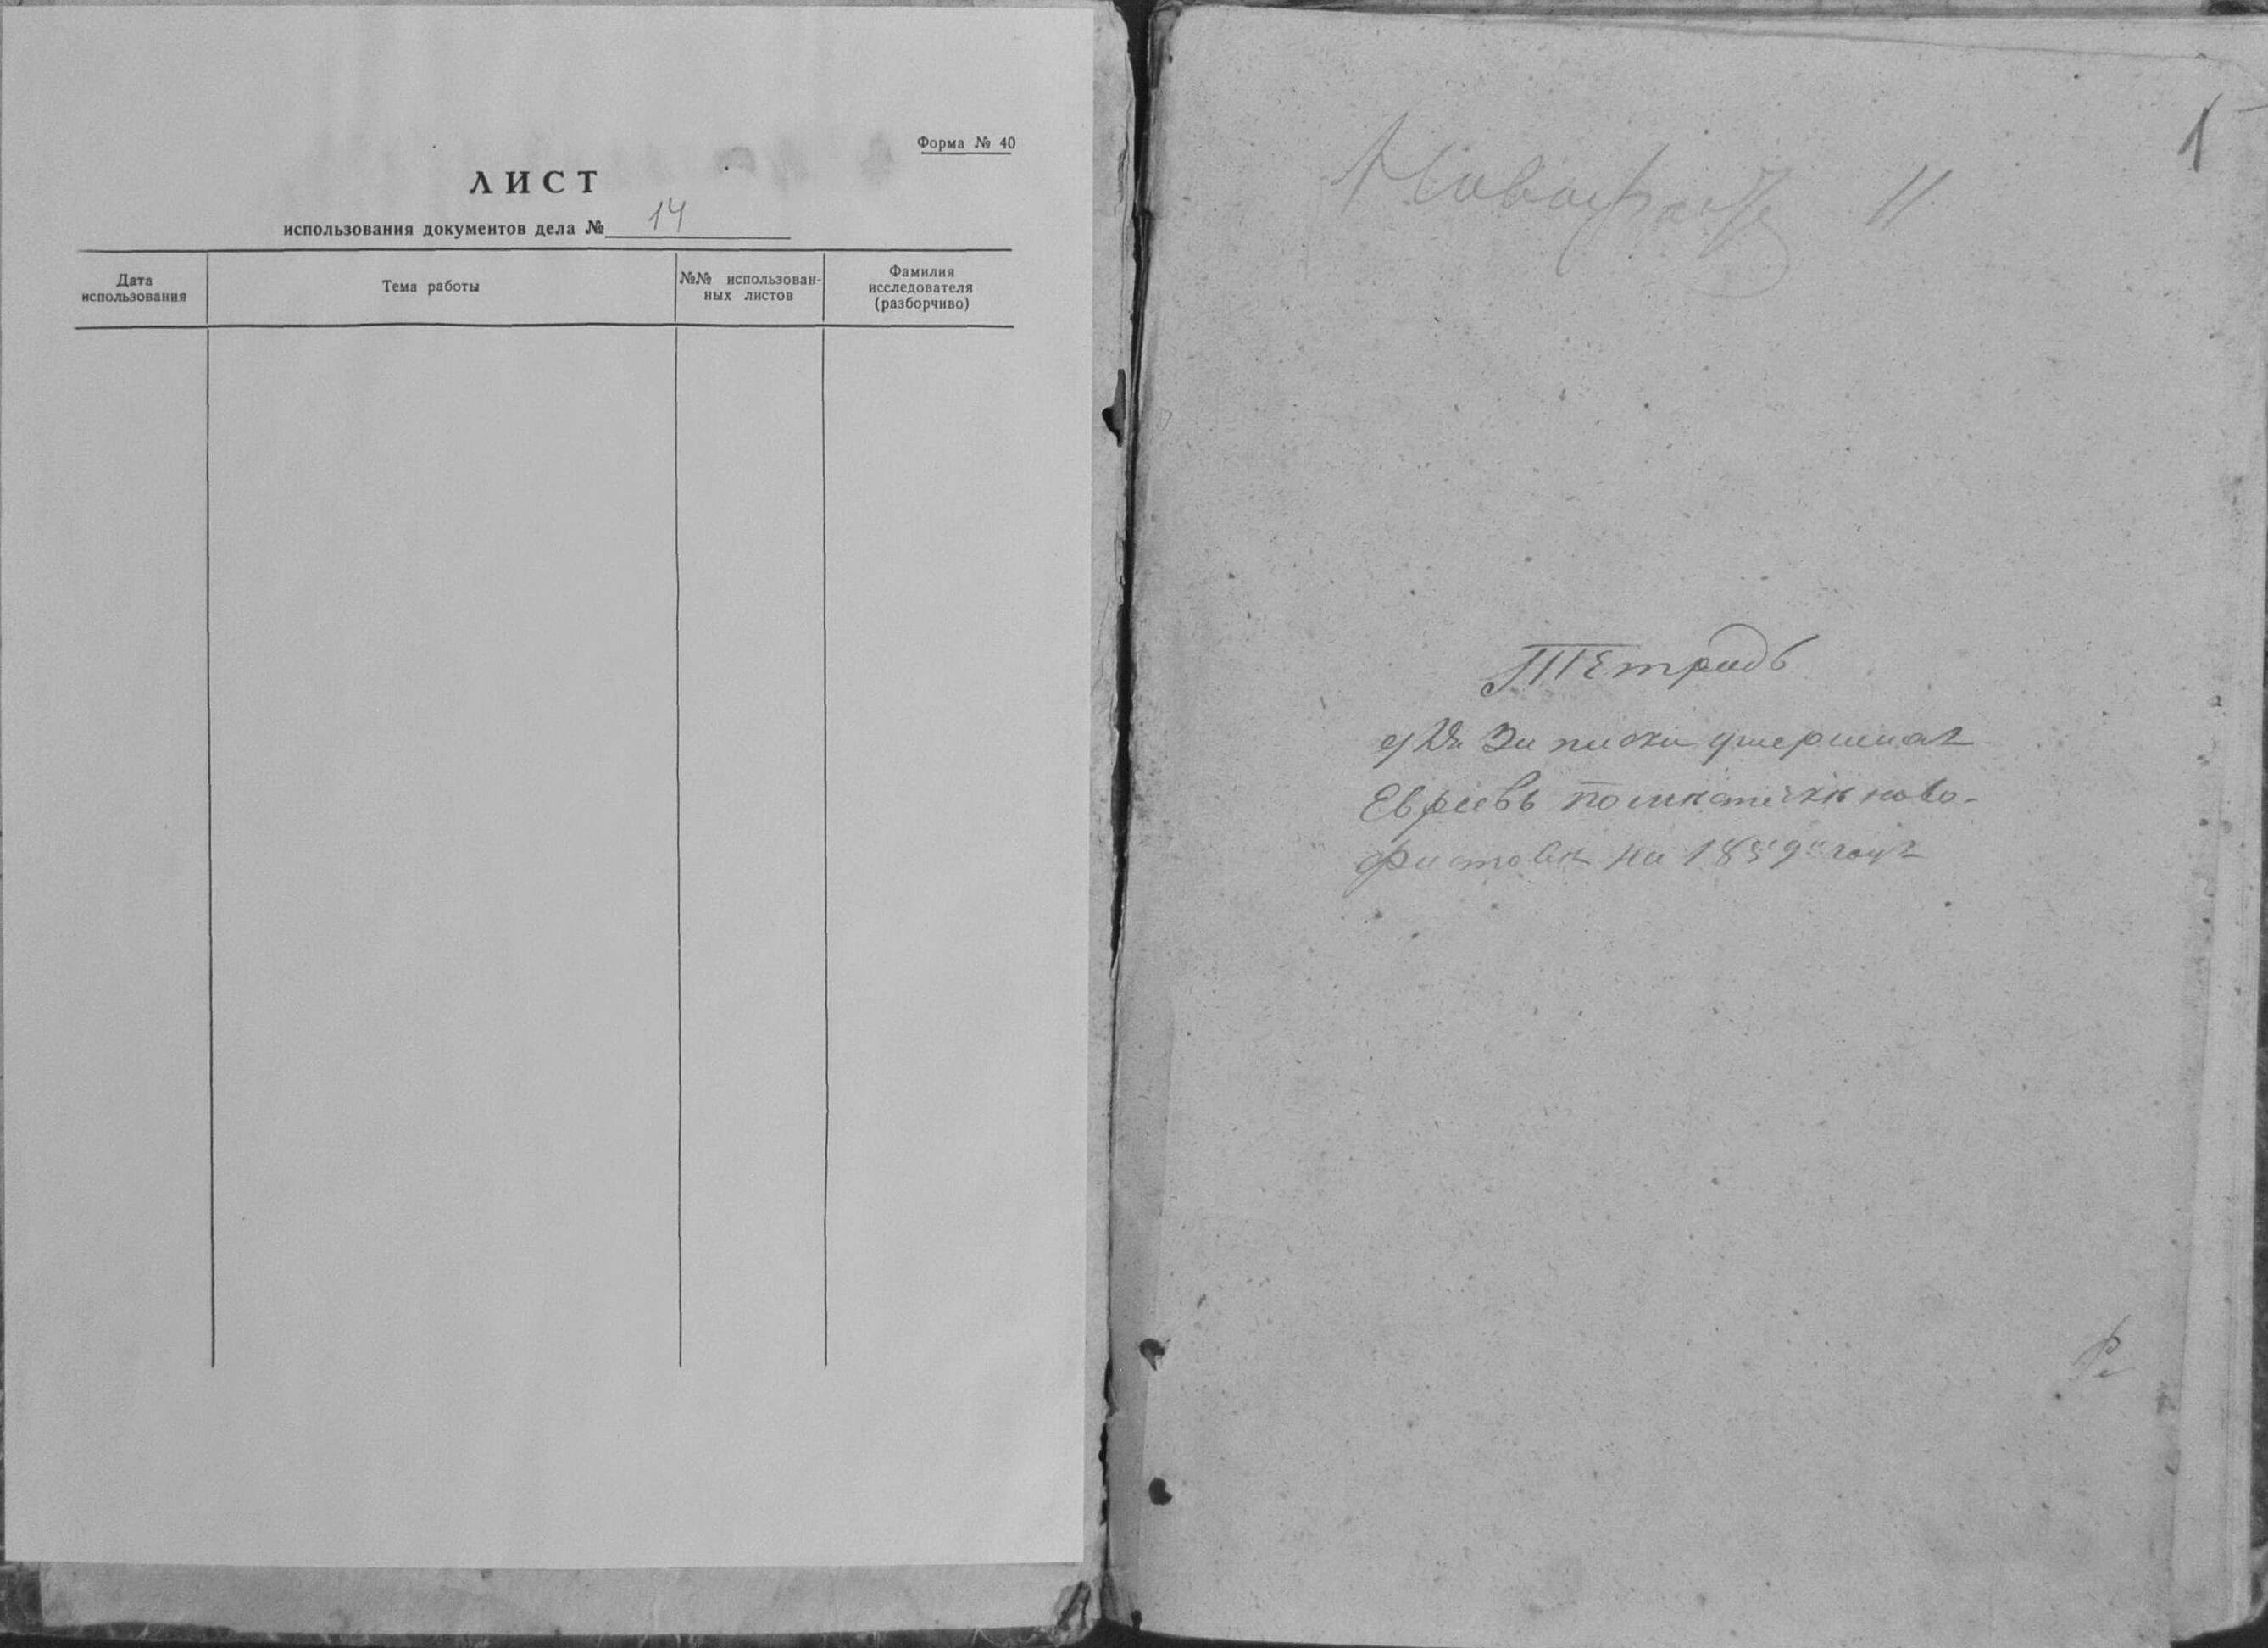 Форма № 40
ЛИСТ
использования документов дела № 14
Дата использования
Тема работы
№№ использован-
ных листов
Фамилия
исследователя
(разборчиво)
1
11
Тетрадь
для Записки умершихъ
Евреевъ по мѣстечкѣ ново-
фастовѣ на 1859 годъ